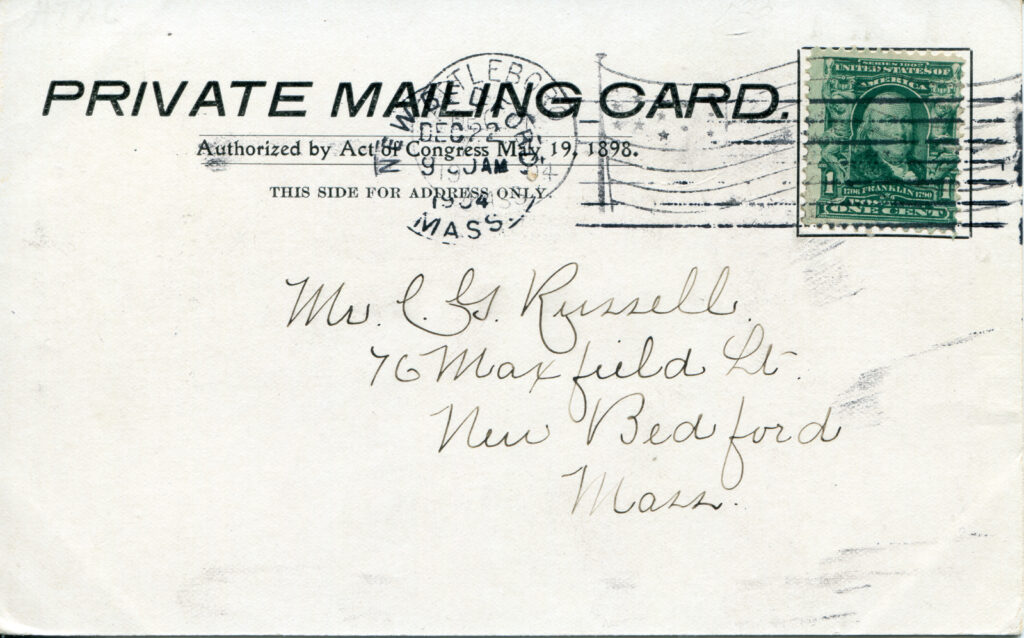 PRIVATE MAILING CARD.
Authorized by Act of Congress May 19, 1898.
THIS SIDE FOR ADDRESS ONLY.
NEW BEDFORD
DEC 22
9 AM
1904
MASS.
SERIES 1902
UNITED STATES OF
AMERICA
1 1
1706 FRANKLIN 1790
POSTAGE
ONE CENT
Mr. C. G. Russell.
76 Maxfield St.
New Bedford
Mass.